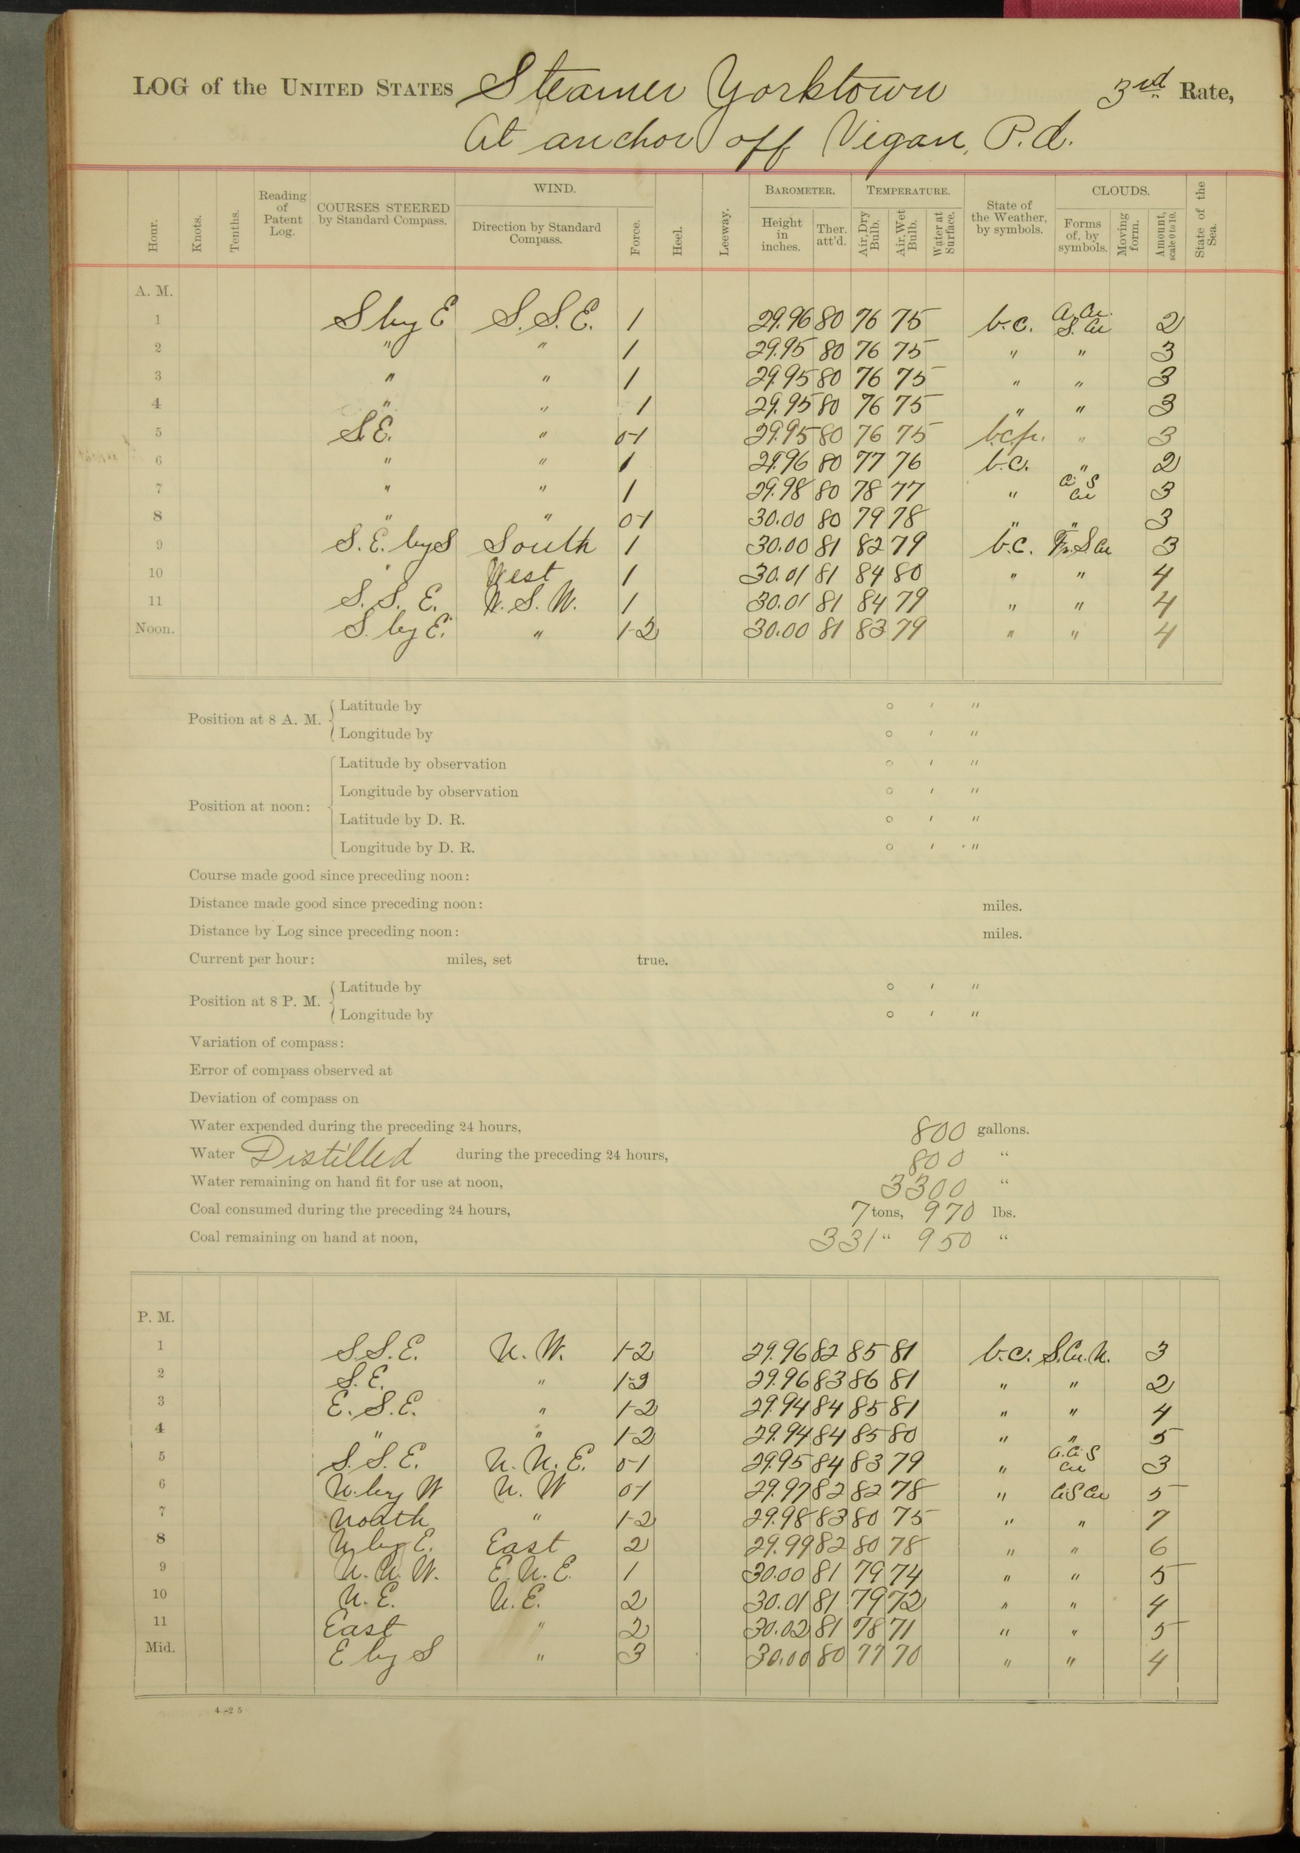 LOG of the UNITED STATES Steamer Yorktown 3rd Rate,
At anchor off Vigan, P.I.
Hour. Knots. Tenths. Reading of Patent Log. COURSES STEERED by Standard Compass. WIND. Direction by Standard Compass. Force. Heel. Leeway. BAROMETER. Height in inches. Ther. att'd. TEMPERATURE. Air, Dry Bulb. Air, Wet Bulb. Water at Surface. State of the Weather, by symbols. CLOUDS. Forms of, by symbols. Moving form. Amount, scale 0 to 10. State of the Sea.
A. M.
1 S by E S.S.E. 1 29.96 80 76 75 b.c. S. Cu 2
2 " " 1 29.95 80 76 75 " " 3
3 " " 1 29.95 80 76 75 " " 3
4 " " 1 29.95 80 76 75 " " 3
5 S.E. " 0-1 29.95 80 76 75 b.c.p. " 3
6 " " 1 29.96 80 77 76 b.c. " 2
7 " " 1 29.98 80 78 77 " Ci. S Cu 3
8 " " 0-1 30.00 80 79 78 " " 3
9 S.E. by S South 1 30.00 81 82 79 b.c. S Cu 3
10 " West 1 30.01 81 84 80 " " 4
11 S.S.E. W.S.W. 1 30.01 81 84 79 " " 4
Noon. S. by E. " 1-2 30.00 81 83 79 " " 4
Position at 8 A. M. Latitude by ° ′ ″
Longitude by ° ′ ″
Position at noon: Latitude by observation ° ′ ″
Longitude by observation ° ′ ″
Latitude by D. R. ° ′ ″
Longitude by D. R. ° ′ ″
Course made good since preceding noon:
Distance made good since preceding noon: miles.
Distance by Log since preceding noon: miles.
Current per hour: miles, set true.
Position at 8 P. M. Latitude by ° ′ ″
Longitude by ° ′ ″
Variation of compass:
Error of compass observed at
Deviation of compass on
Water expended during the preceding 24 hours, 800 gallons.
Water Distilled during the preceding 24 hours, 800 "
Water remaining on hand fit for use at noon, 3300 "
Coal consumed during the preceding 24 hours, 7 tons, 970 lbs.
Coal remaining on hand at noon, 331 " 950 "
P. M.
1 S.S.E. N.W. 1-2 29.96 82 85 81 b.c. S.Cu.N. 3
2 S.E. " 1-2 29.96 83 86 81 " " 2
3 E.S.E. " 1-2 29.94 84 85 81 " " 4
4 " " 1-2 29.94 84 85 80 " " 5
5 S.S.E. N.N.E. 0-1 29.95 84 83 79 " Ci. S Cu 3
6 N. by W N.W 0-1 29.97 82 82 78 " Ci S Cu 5
7 North " 1-2 29.98 83 80 75 " " 7
8 N by E. East 2 29.99 82 80 78 " " 6
9 N.N.W. E.N.E. 1 30.00 81 79 74 " " 5
10 N.E. N.E. 2 30.01 81 79 72 " " 4
11 East " 2 30.02 81 78 71 " " 5
Mid. E by S " 3 30.00 80 77 70 " " 4
4—2 5